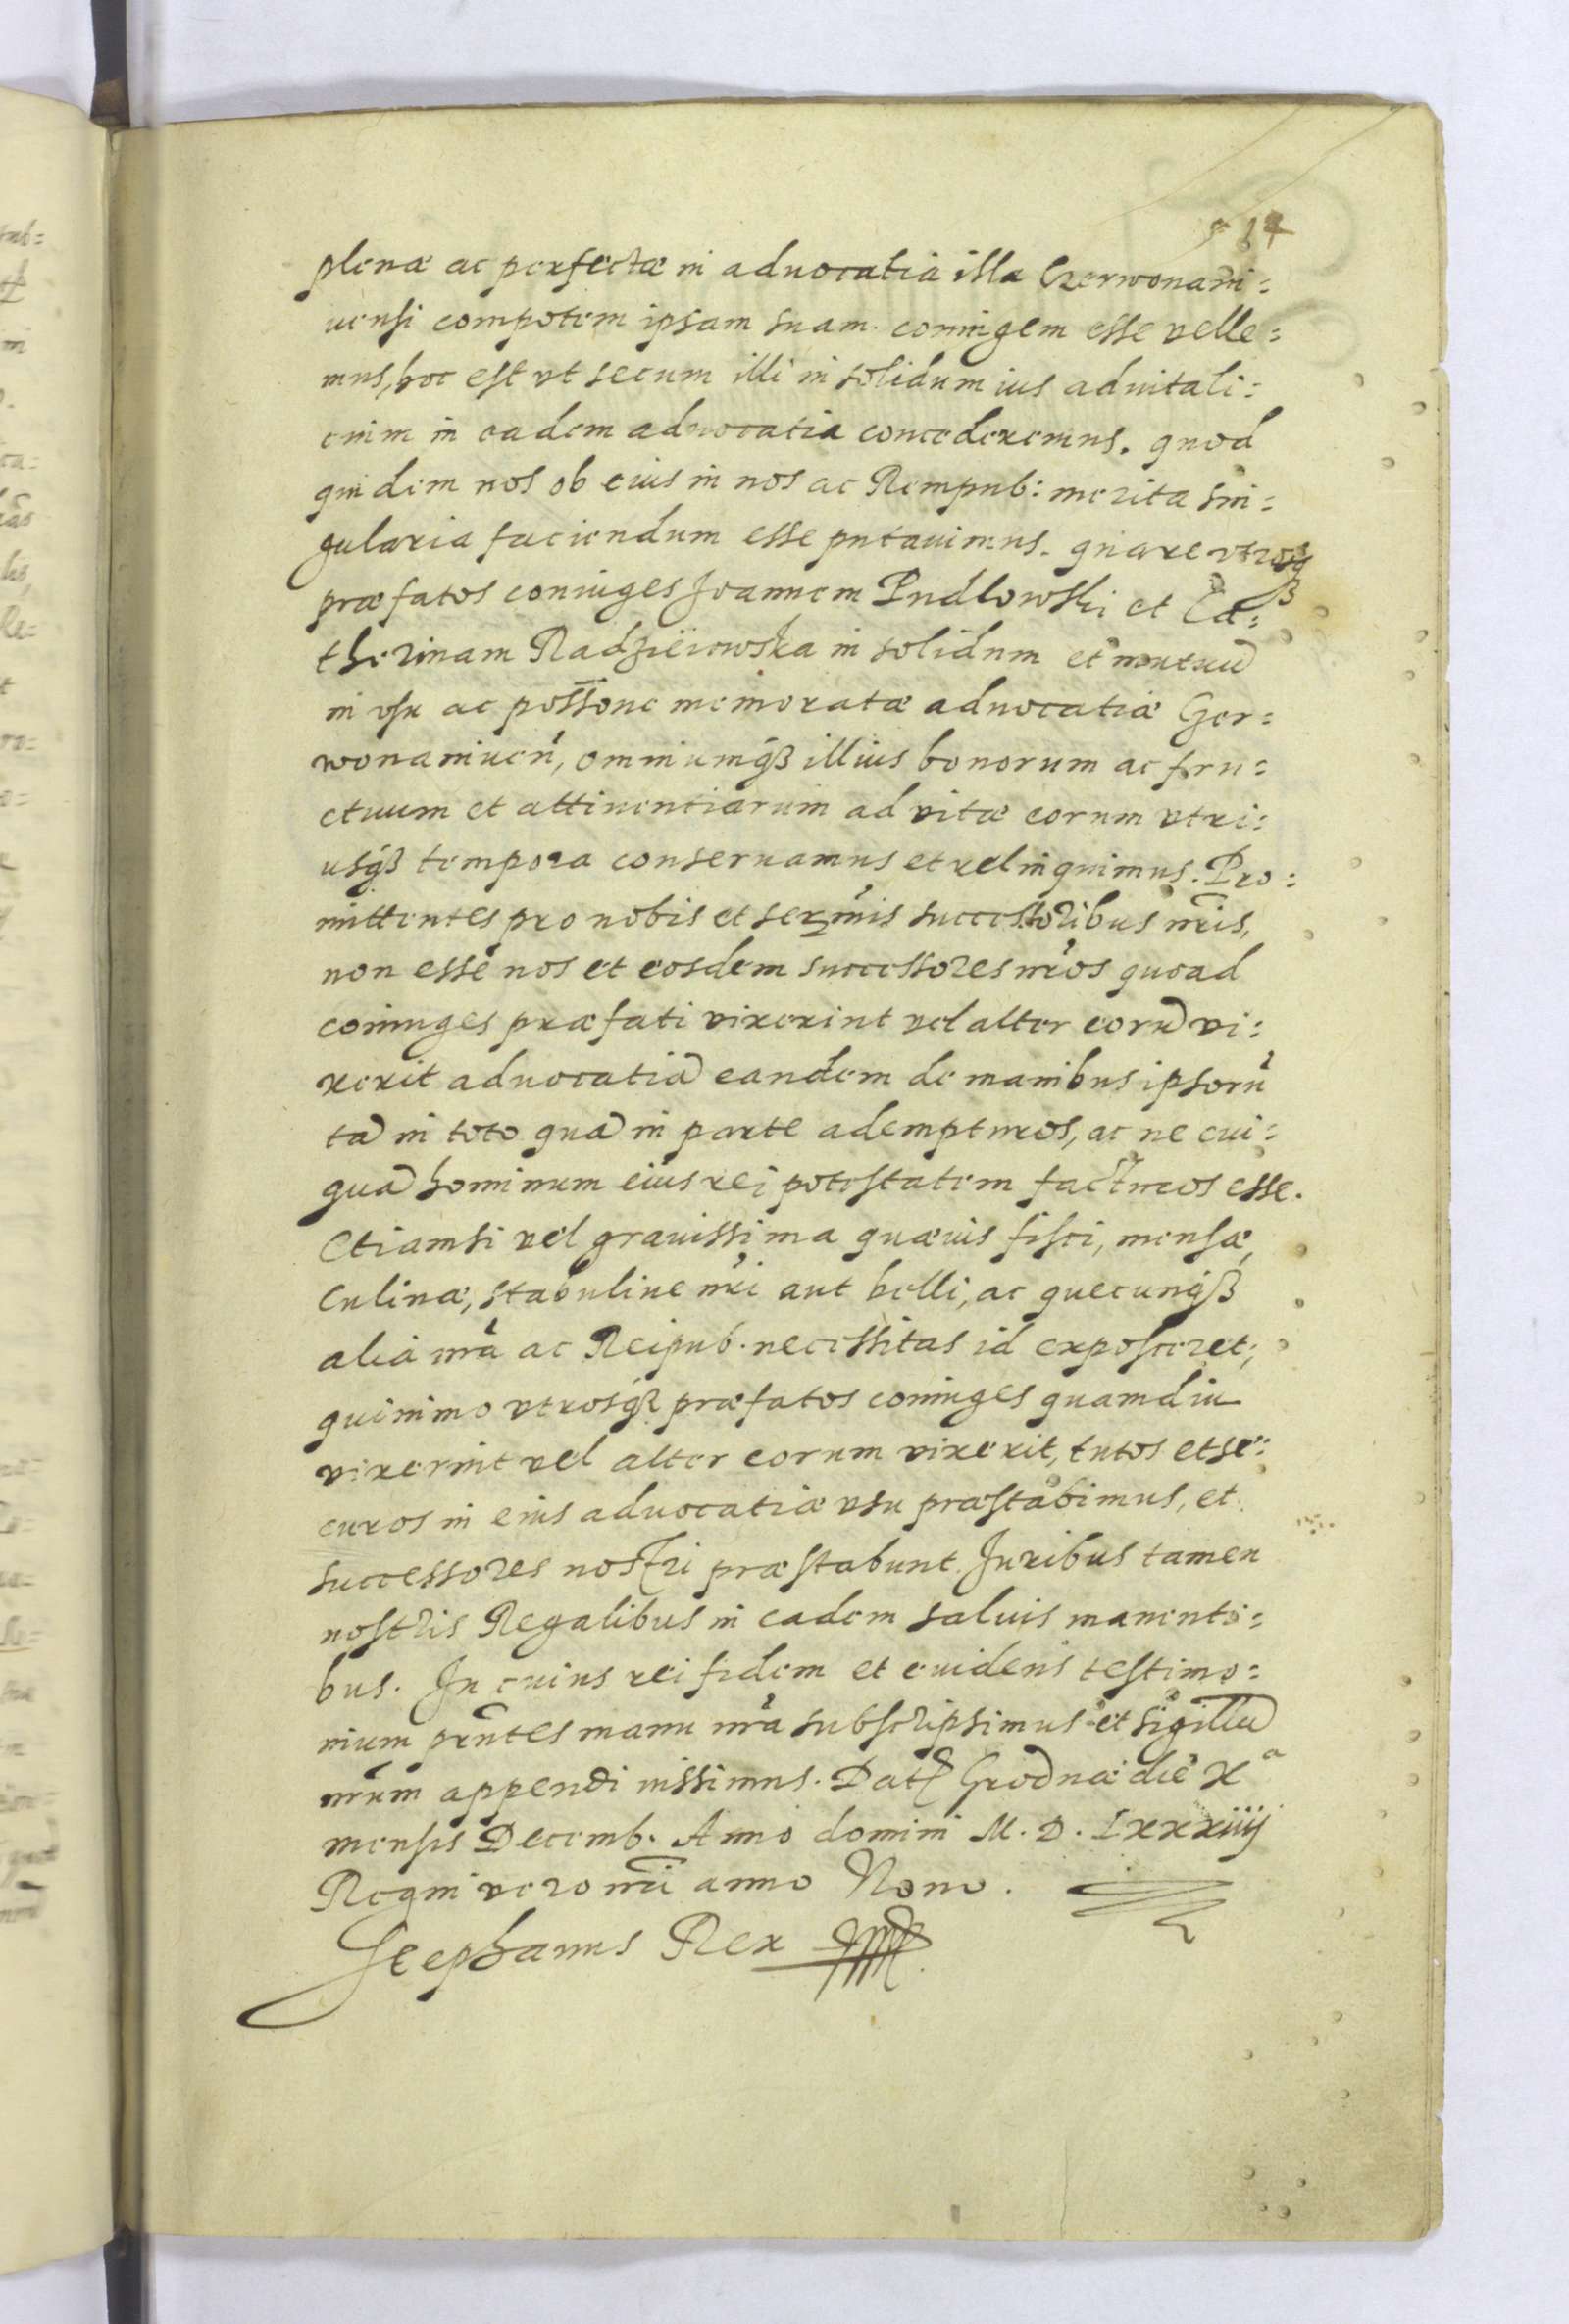 plenæ ac perfectæ in aduocatia illa Czerwonani:
uensi compotem ipsam suam coniugem esse velle:
mus, hoc est vt secum illi in solidum ius aduitali:
cium in eadem aduocatia concederemus. quod
quidem nos ob eius in nos ac Rempub: merita sin:
gularia faciendum esse putauimus. quare vtrosqꝫ
præfatos coniuges Joannem Pudlowski et Ca:
therinam Radzieiowska in solidum et mutuũ
in vsu ac possone memoratæ aduocatiæ Czer:
wonaniuen̉, omniumqꝫ illius bonorum ac fru:
ctuum et attinentiarum ad vitæ eorum vtri:
usqꝫ tempora conseruamus et relinquimus. Pro:
mittentes pro nobis et sermis successoribus nris,
non esse nos et eosdem successores nros quoad
coniuges præfati vixerint vel alter eorũ vi:
xerit aduocatiã eandem de manibus ipsorũ
tã in toto quã in parte adempturos, ac ne cui:
quã hominum eius rei potestatem facturos esse.
Etiamsi vel grauissima quæuis fisci, mensæ,
Culinæ, stabuliue nri aut belli, ac quecunqꝫ
alia nra ac Reipub. necessitas id exposceret;
quinimo vtrosqꝫ præfatos coniuges quamdiu
vixerint vel alter eorum vixerit, tutos et se:
curos in eius aduocatiæ vsu præstabimus, et
successores nostri præstabunt. Juribus tamen
nostris Regalibus in eadem saluis manenti:
bus. In cuius rei fidem et euidens testimo:
nium prntes manu nra subscripsimus et sigillũ
nrum appendi iussimus. Dat Grodnæ die Xa
mensis Decemb. Anno domini M. D. Lxxxiiij
Regni vero nri anno Nono.
Stephanus Rex